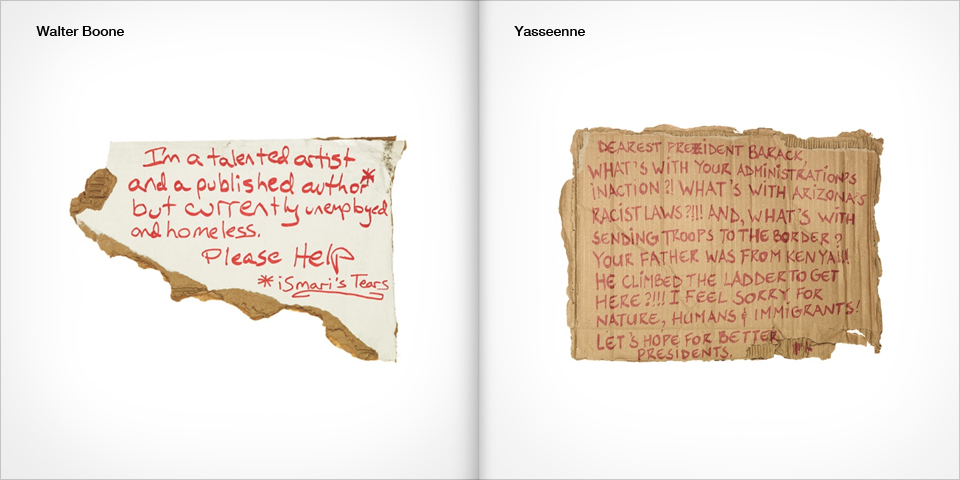 Walter Boone
I'm a talented artist
and a published author*
but currently unemployed
and homeless.
Please Help
*iSmari's Tears
Yasseenne
DEAREST PREZIDENT BARACK,
WHAT'S WITH YOUR ADMINISTRATION'S
INACTION?! WHAT'S WITH ARIZONA'S
RACIST LAWS?!!! AND, WHAT'S WITH
SENDING TROOPS TO THE BORDER?
YOUR FATHER WAS FROM KENYA!!!
HE CLIMBED THE LADDER TO GET
HERE?!!! I FEEL SORRY FOR
NATURE, HUMANS & IMMIGRANTS!
LET'S HOPE FOR BETTER
PRESIDENTS.